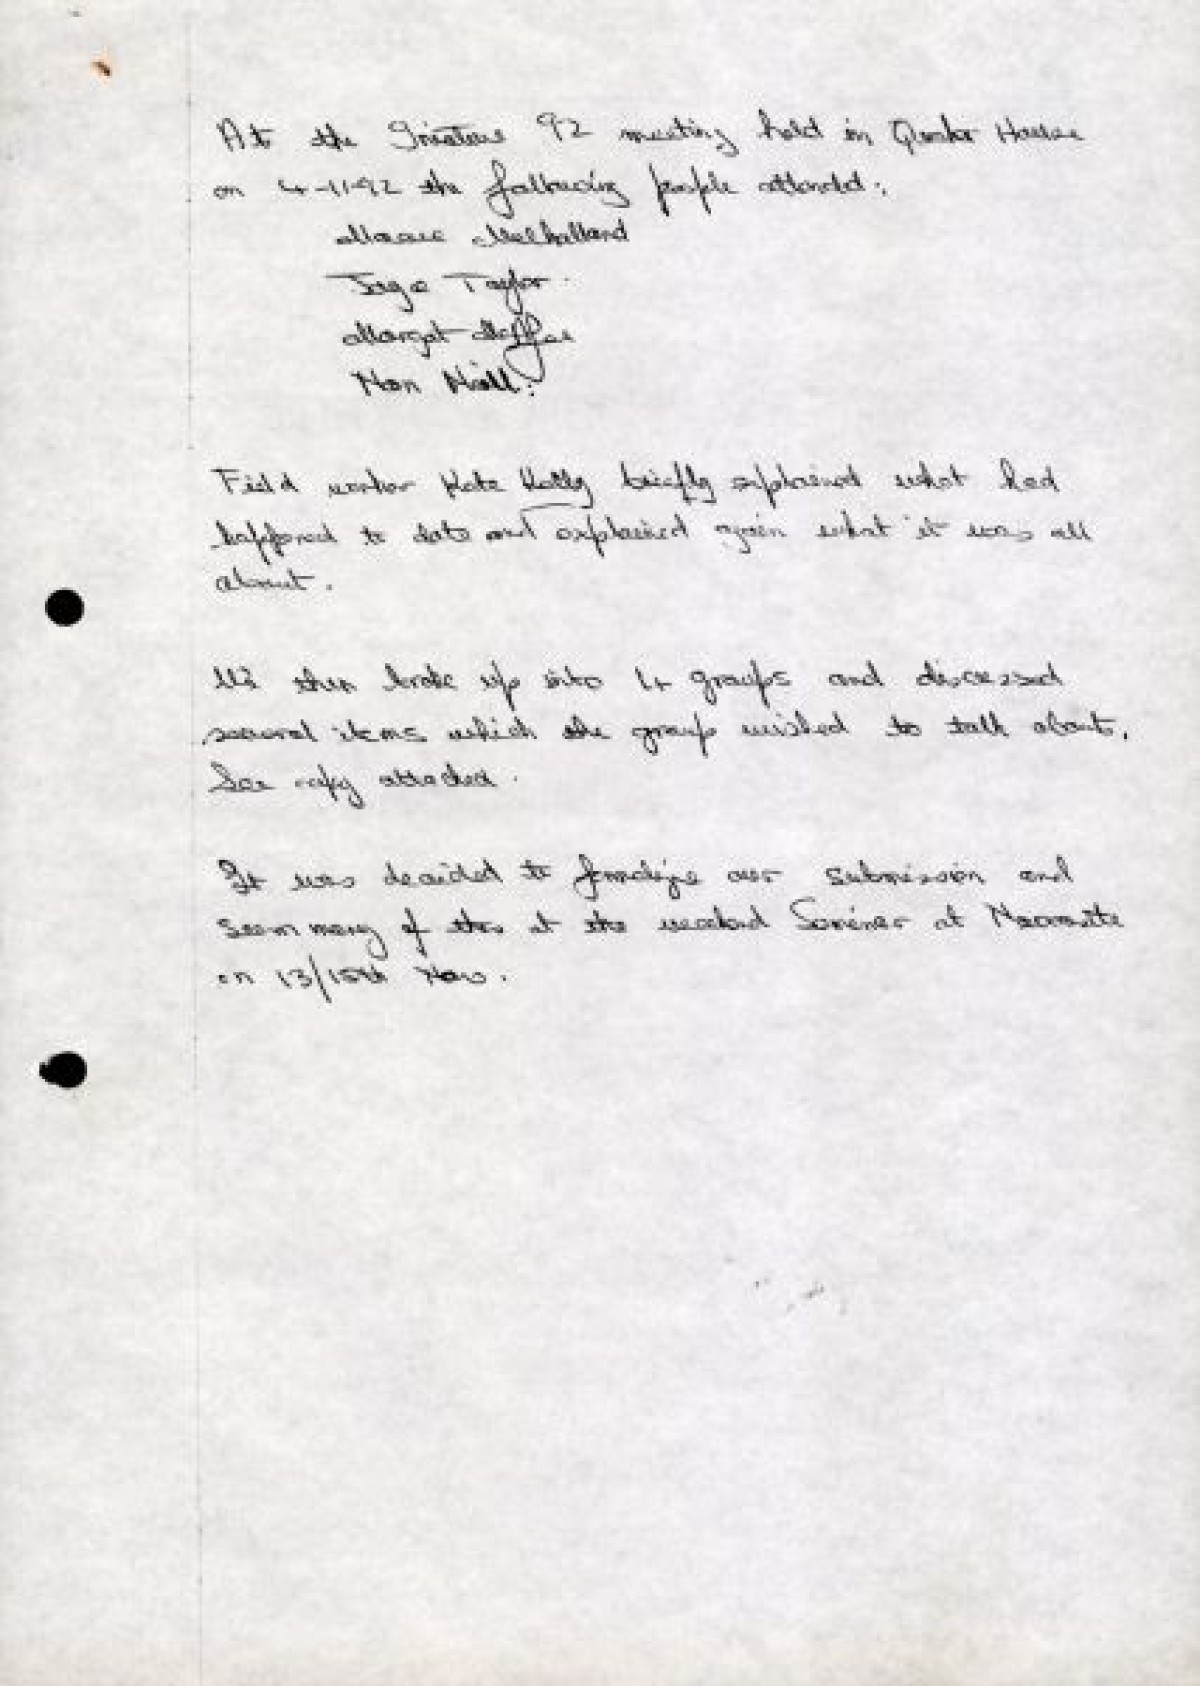 At the Initiative 92 meeting held in Quaker House
on 4-11-92 the following people attended:
Mulholland
Taylor
Margot
Field worker Kate Kelly briefly explained what had
happened to date and explained again what it was all
about.
We then broke up into 4 groups and discussed
several items which the group wished to talk about.
See copy attached.
It was decided to our submission and
summary of this at the weekend Seminar at
on 13/15th Nov.